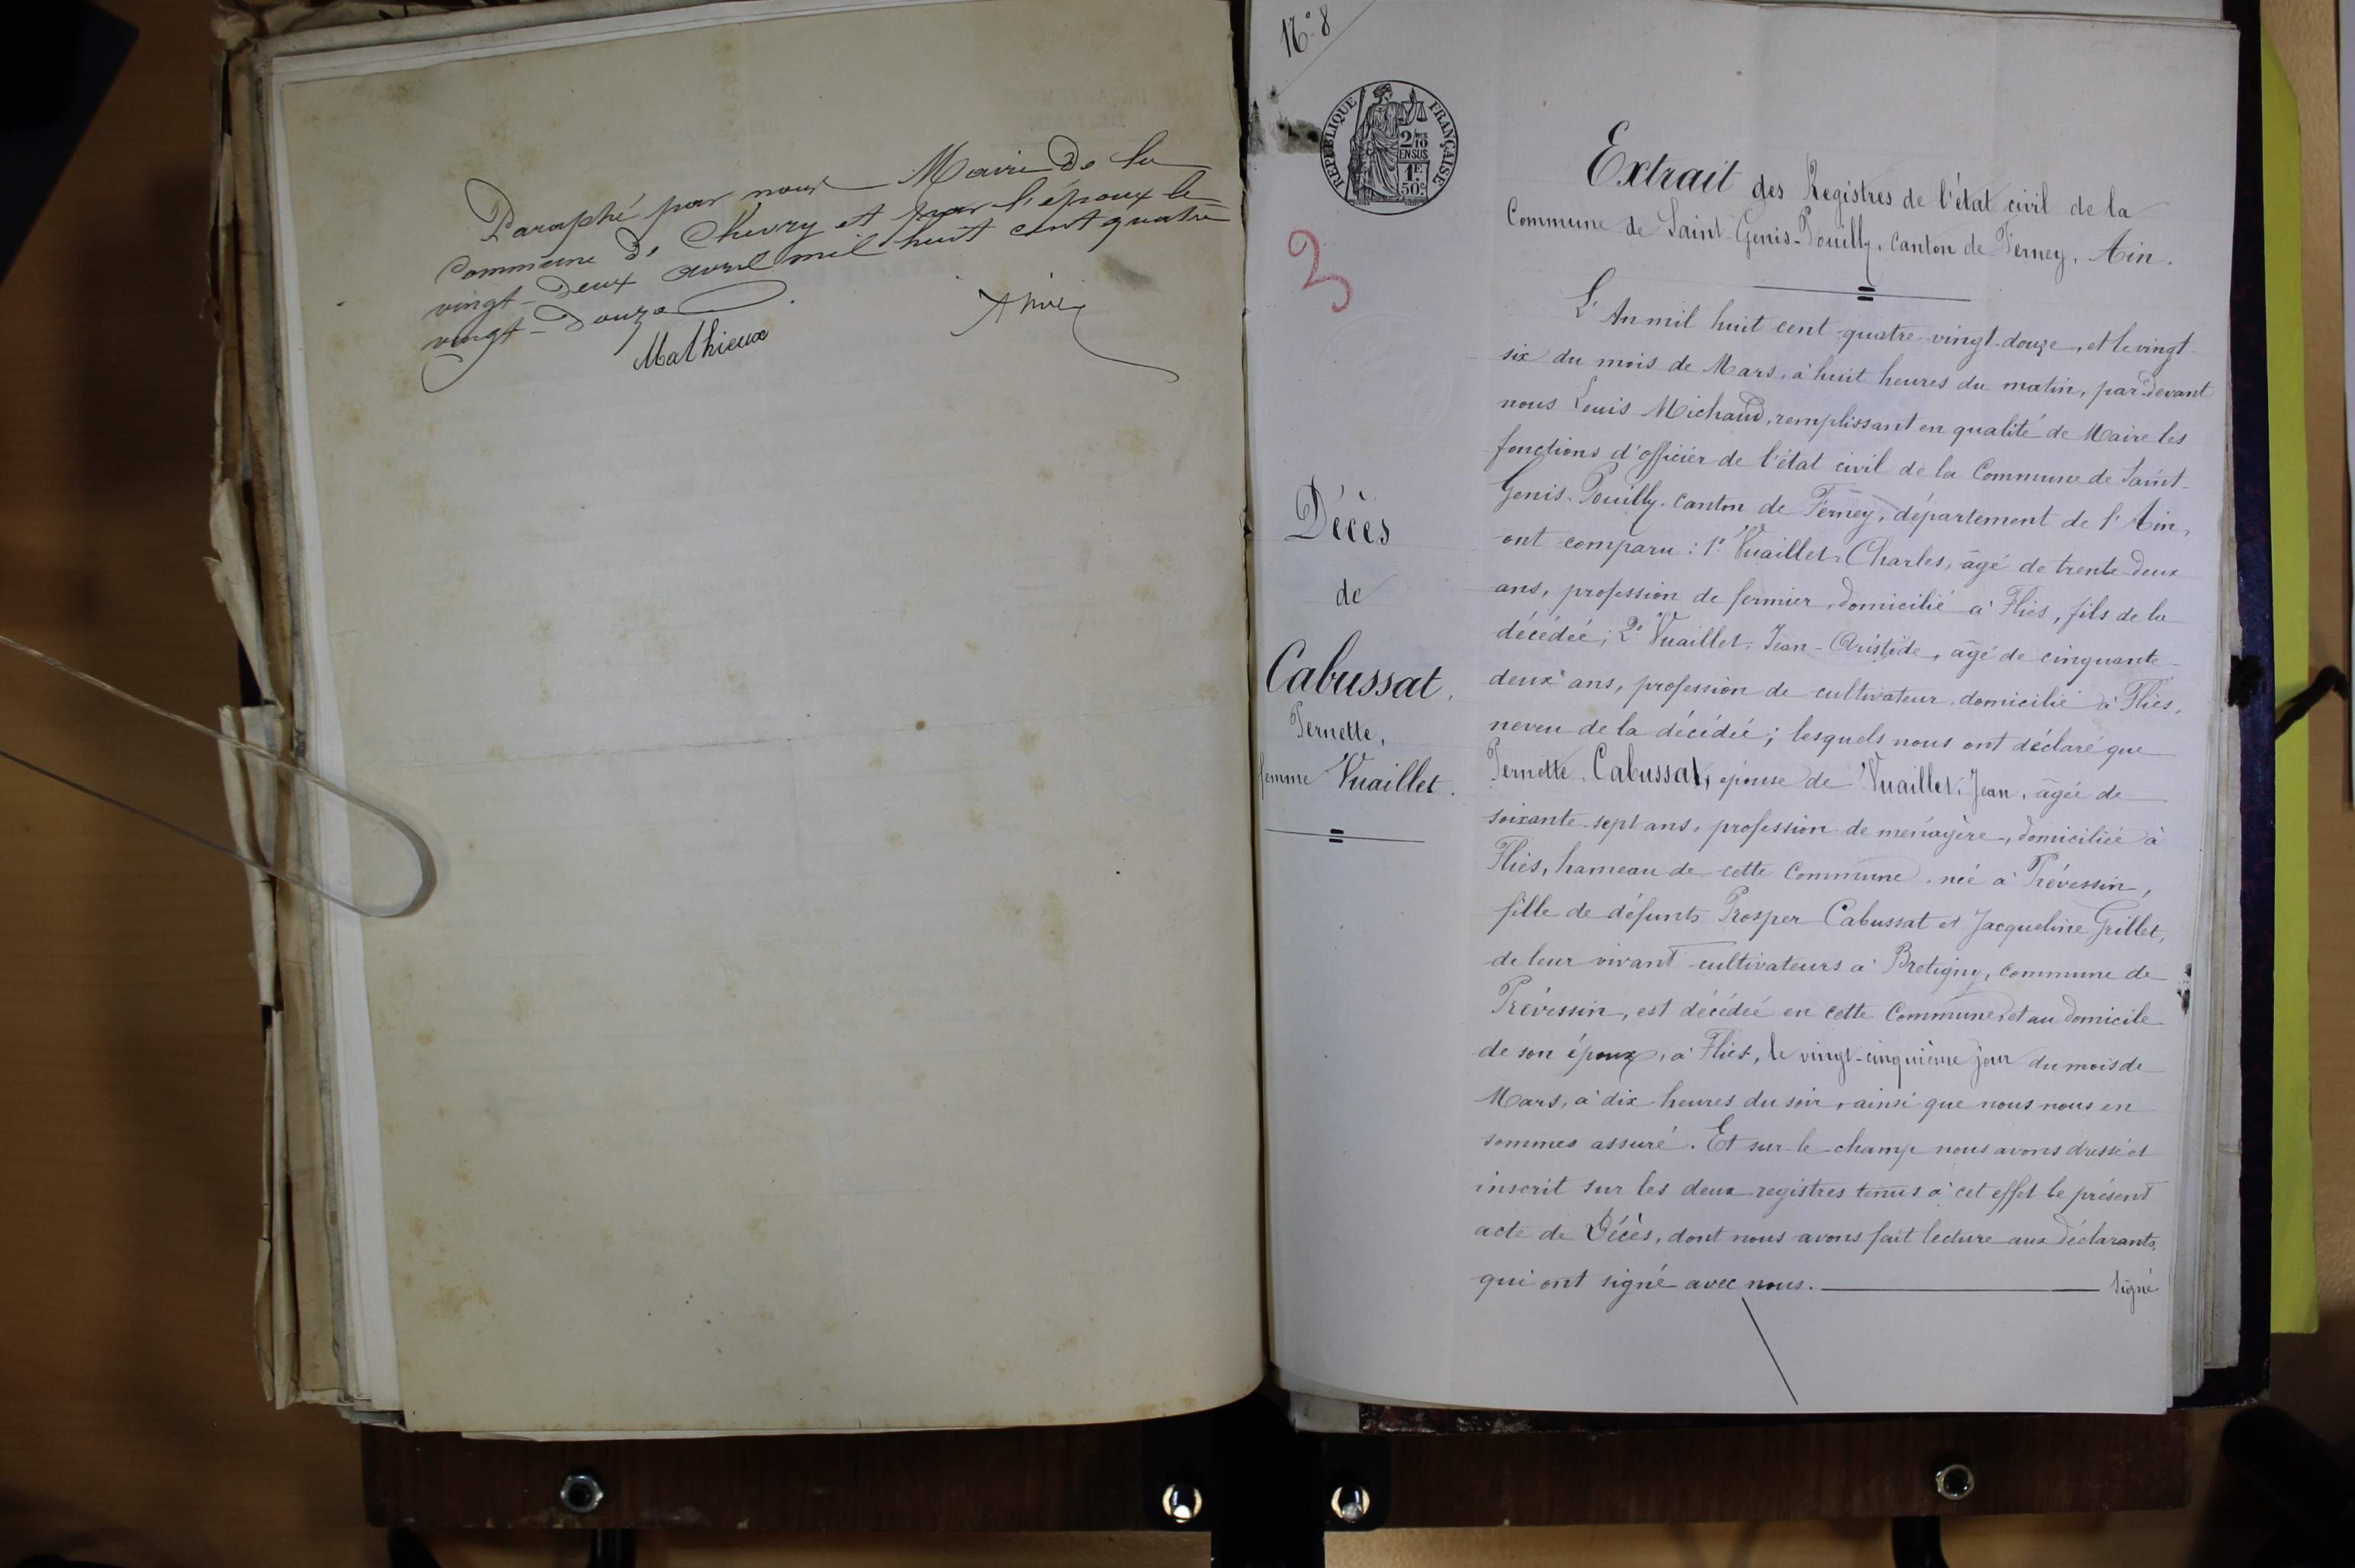 Paraphé par nous Maire de la
Commune de Chevry et par l'époux le
vingt-deux avril mil huit cent quatre
vingt-douze
Mathieux
N° 8
RÉPUBLIQUE FRANÇAISE
2/10
EN SUS
1F.
50c
3
Extrait des Registres de l'état civil de la
Commune de Saint-Genis-Pouilly, Canton de Ferney, Ain.
L'An mil huit cent quatre-vingt-douze, et le vingt-
six du mois de Mars, à huit heures du matin, par devant
nous Louis Michaud, remplissant en qualité de Maire les
fonctions d'officier de l'état civil de la Commune de Saint-
Genis-Pouilly, canton de Ferney, département de l'Ain,
ont comparu : 1° Vuaillet, Charles, âgé de trente-deux
ans, profession de fermier, domicilié à Flies, fils de la
décédée; 2° Vuaillet, Jean-Aristide, âgé de cinquante-
deux ans, profession de cultivateur, domicilié à Flies,
neveu de la décédée; lesquels nous ont déclaré que
Pernette Cabussat, épouse de Vuaillet, Jean, âgée de
soixante-sept ans, profession de ménagère, domiciliée à
Flies, hameau de cette Commune, née à Prévessin,
fille de défunts Prosper Cabussat et Jacqueline Grillet,
de leur vivant cultivateurs à Bretigny, commune de
Prévessin, est décédée en cette Commune, et au domicile
de son époux, à Flies, le vingt-cinquième jour du mois de
Mars, à dix heures du soir, ainsi que nous nous en
sommes assuré. Et sur-le-champ nous avons dressé et
inscrit sur les deux registres tenus à cet effet le présent
acte de Décès, dont nous avons fait lecture aux déclarants,
qui ont signé avec nous. Signé
Décès
de
Cabussat,
Pernette,
femme Vuaillet.